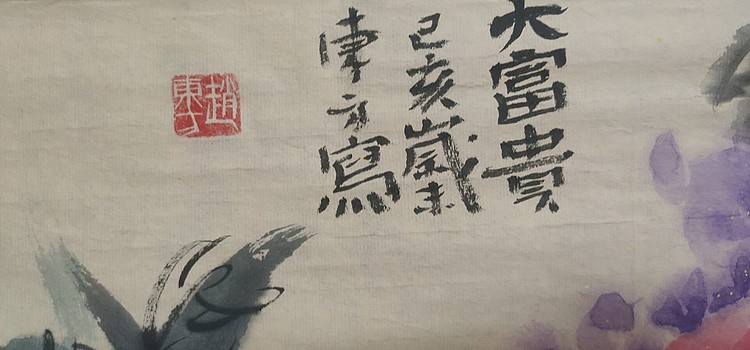 大富貴
己亥歲
東方寫
趙東方